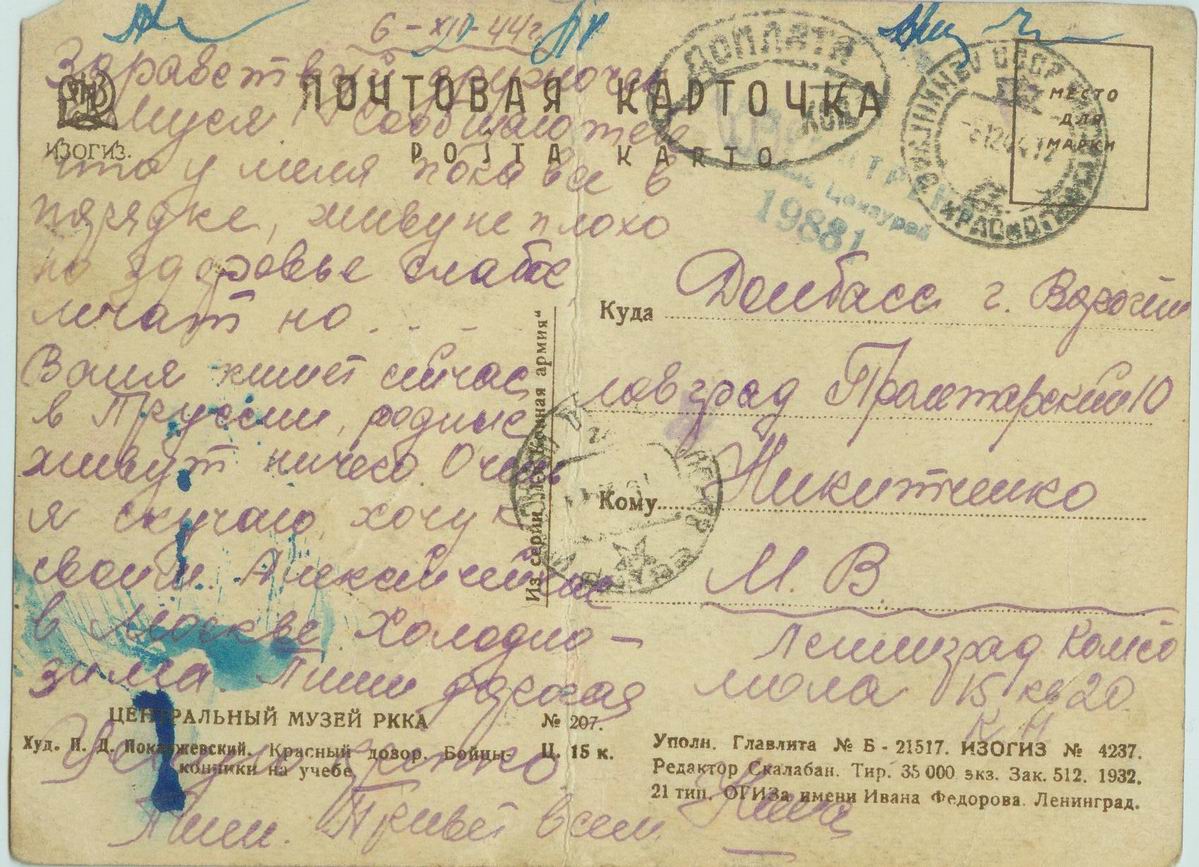 6-XII-44г.
Здравствуй дружочек
Муся! Сообщаю тебе
что у меня пока все в
порядке, живу не плохо
но здоровье слабое
лечат но...
Ваня пишет сейчас
в Пруссии, родные
живут ничего. Очень
я скучаю хочу к
своим.
в Москве Холодно-
зима. Пиши дорогая
Целую крепко
Пиши. Привет всем
ПОЧТОВАЯ КАРТОЧКА
POJTA KARTO
ИЗОГИЗ.
ДОПЛАТА
КОП.
МЕСТО
ДЛЯ
МАРКИ
Цензурой
19881
Куда Донбасс г. Вороши
ловград Пролетарский 10
Кому Никитченко
М. В.
Ленинград Комсо
мола 15 кв 20.
К Н
Из серии „Конная армия"
ЦЕНТРАЛЬНЫЙ МУЗЕЙ РККА № 207.
Худ. И. Д. Покаржевский. Красный дозор. Бойцы- Ц. 15 к.
конники на учебе
Уполн. Главлита № Б - 21517. ИЗОГИЗ № 4237.
Редактор Скалабан. Тир. 35 000 экз. Зак. 512. 1932.
21 тип. ОГИЗа имени Ивана Федорова. Ленинград.